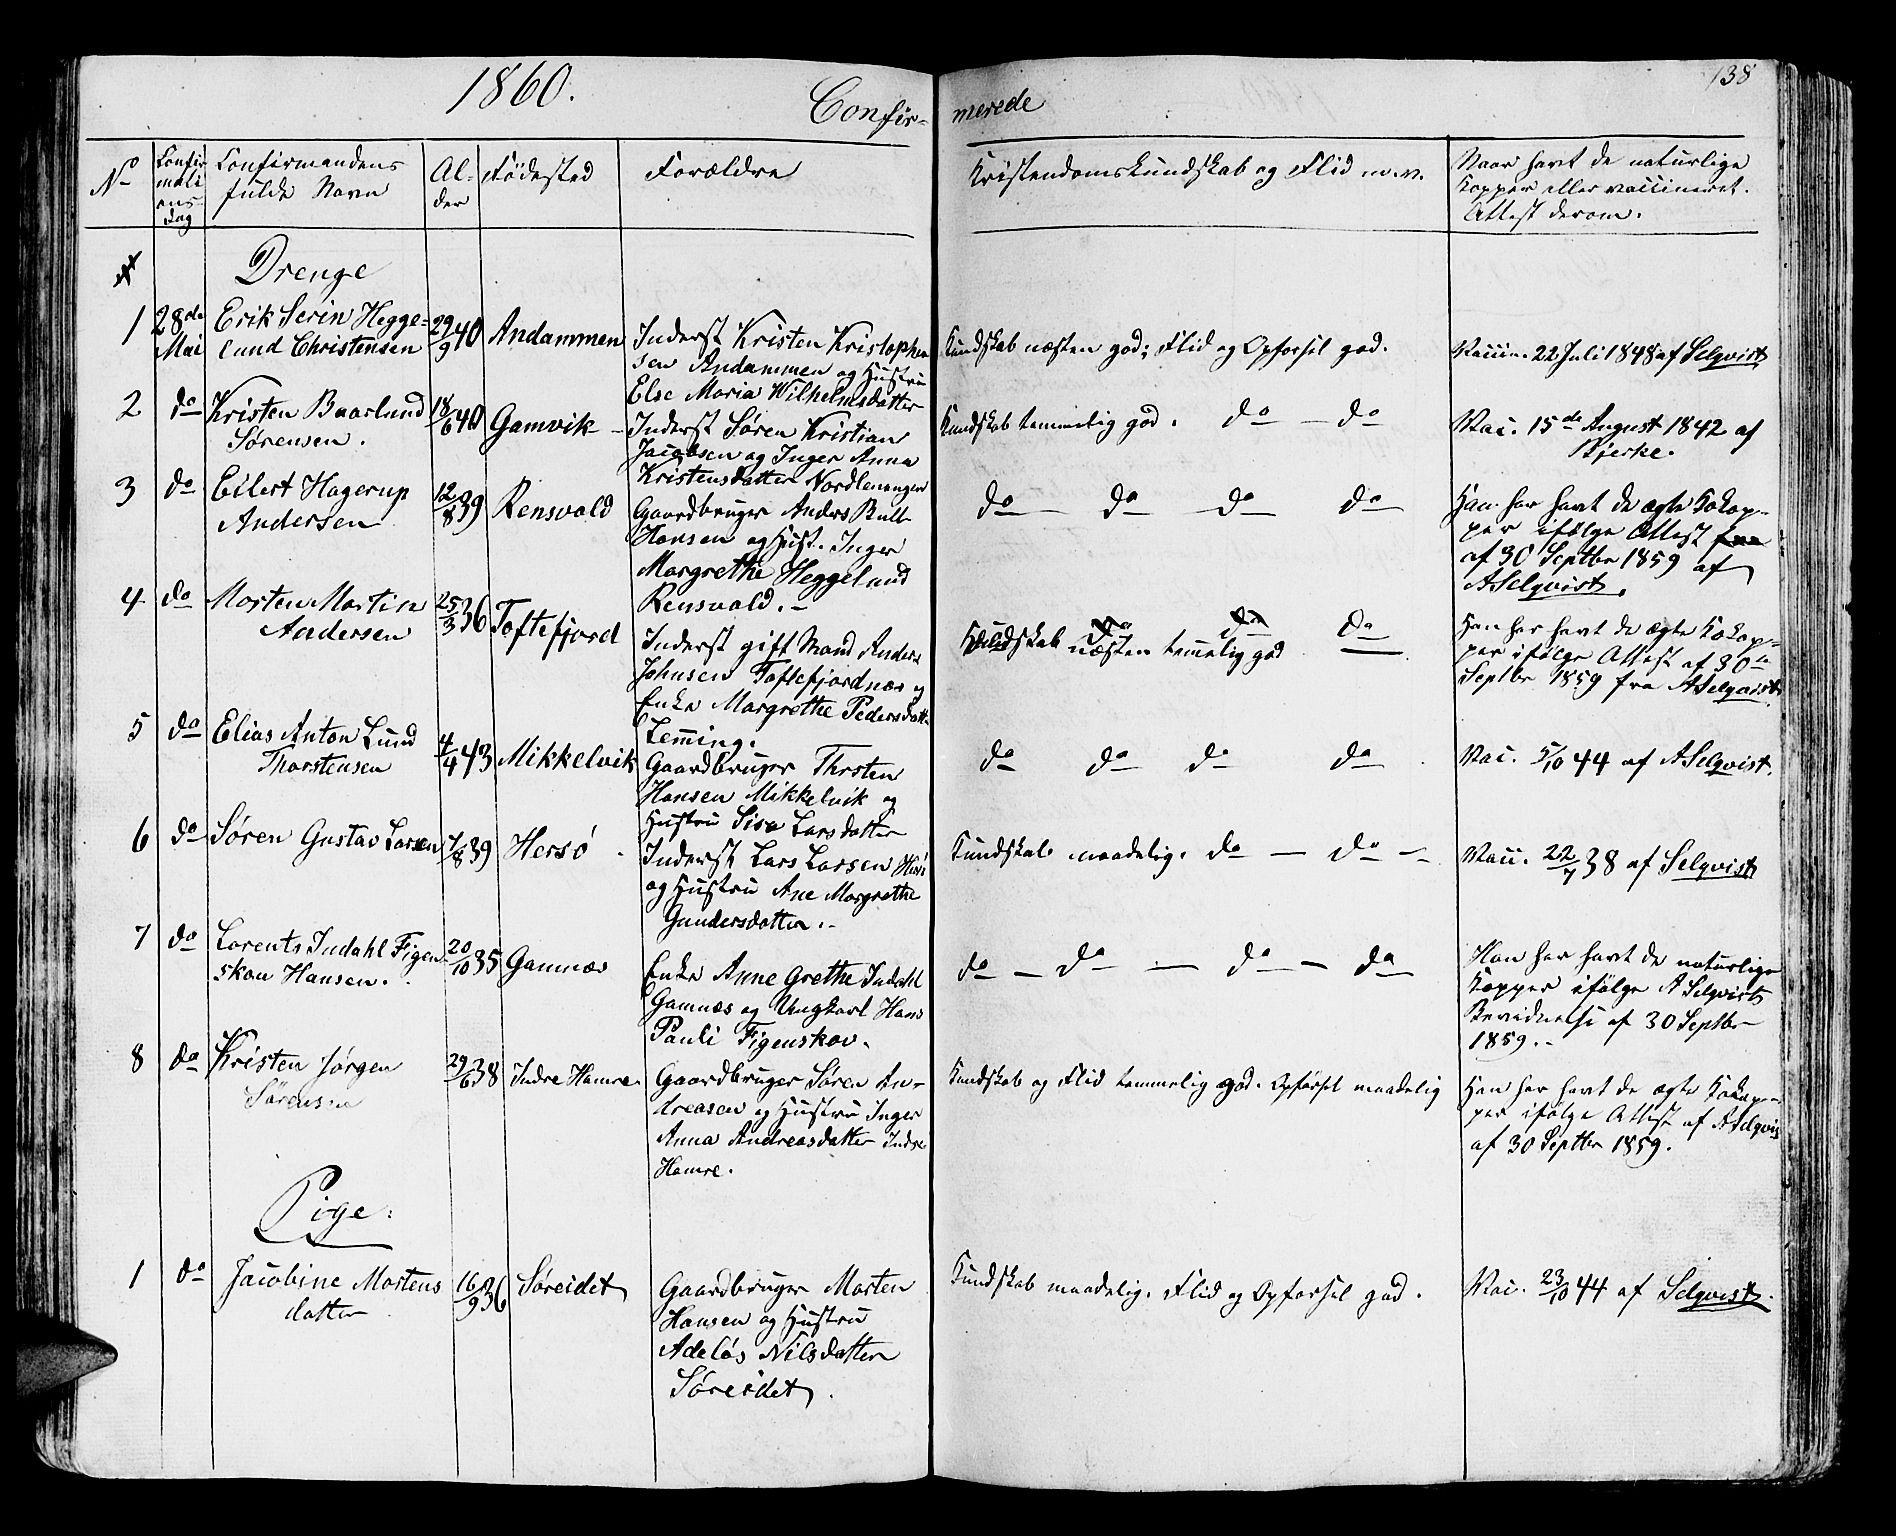 1860.
138
Confir-
merede
No
Confir
mati
ons-
Dag
Confirmandens
fulde Navn
Al-
der
Fødested
Forældre
Kristendomskundskab og Flid m.v.
Naar havt de naturlige
Kopper eller vaccineret.
Attest derom.
Drenge
1
28de
Mai
Erik Serin Hegge-
lund Christensen
29/9 40
Andammen
Inderst Kristen Kristopher
sen Andammen og Hustru
Else Maria Wilhelmsdatter
Kundskab næsten god; Flid og Opførsel god.
Vaccin. 22 Juli 1848 af Selqvist
2
do
Kristen Baarlund
Sørensen.
18/6 40
Gamvik
Inderst Søren Kristian
Jacobsen og Inger Anna
Kristensdatter Nordlenangen
Kundskab temmelig god. do — do
Vac. 15de August 1842 af
Bjerke.
3
do
Eilert Hagerup
Andersen
12/8 39
Rensvold
Gaardbruger Anders Bull
Hansen og Hust. Inger
Margrethe Heggelund
Rensvold.
do do do do
Han har havt de ægte Kokop-
per ifølge Attest fra
af 30 Septbr 1859 af
A Selqvist.
4
do
Morten Martin
Andersen
25/3 36
Toftefjord
Inderst gift Mand Anders
Johnsen Toftefjordnæs og
Enke Margrethe Pedersdatt.
Leming.
Kundskab næsten temmelig god do
Han har havt de ægte Kokop-
per ifølge Attest af 30te
Septbr 1859 fra A Selqvist
5
do
Elias Anton Lund
Thorstensen
4/4 43
Mikkelvik
Gaardbruger Thrsten
Hansen Mikkelvik og
Hustru Sisa Larsdatter
do do do do
Vac. 5/10 44 af A Selqvist.
6
do
Søren Gustav Larsen
7/8 39
Hersö
Inderst Lars Larsen
og Hustru Ane Margrethe
Gundersdatter.
Kundskab maadelig. do — do —
Vacc. 22/7 38 af Selqvist
7
do
Lorents Indahl Figen
skou Hansen.
20/10 35
Gamnæs
Enke Anne Grethe Indahl
Gamnæs og Ungkarl Hans
Pauli Figenskov.
do — do — do — do
Han har havt de naturlige
Kopper ifølge A Selqvists
Bevidnelse af 30 Septbr
1859.
8
do
Kristen Jørgen
Sørensen
29/6 38
Indre Hamre.
Gaardbruger Søren An-
dreasen og Hustru Inger
Anna Andreasdatter Indre
Hamre.
Kundskab og Flid temmelig god. Opførsel maadelig
Han har havt de ægte Kokop-
per ifølge Attest af A Selqvis
af 30 Septbr 1859.
Pige.
1
do
Jacobine Mortens
datter
16/9 36
Søreidet
Gaardbruger Morten
Hansen og Hustru
Adelös Nilsdatter
Søreidet.
Kundskab maadelig. Flid og Opførsel god.
Vac. 23/10 44 af Selqvist.